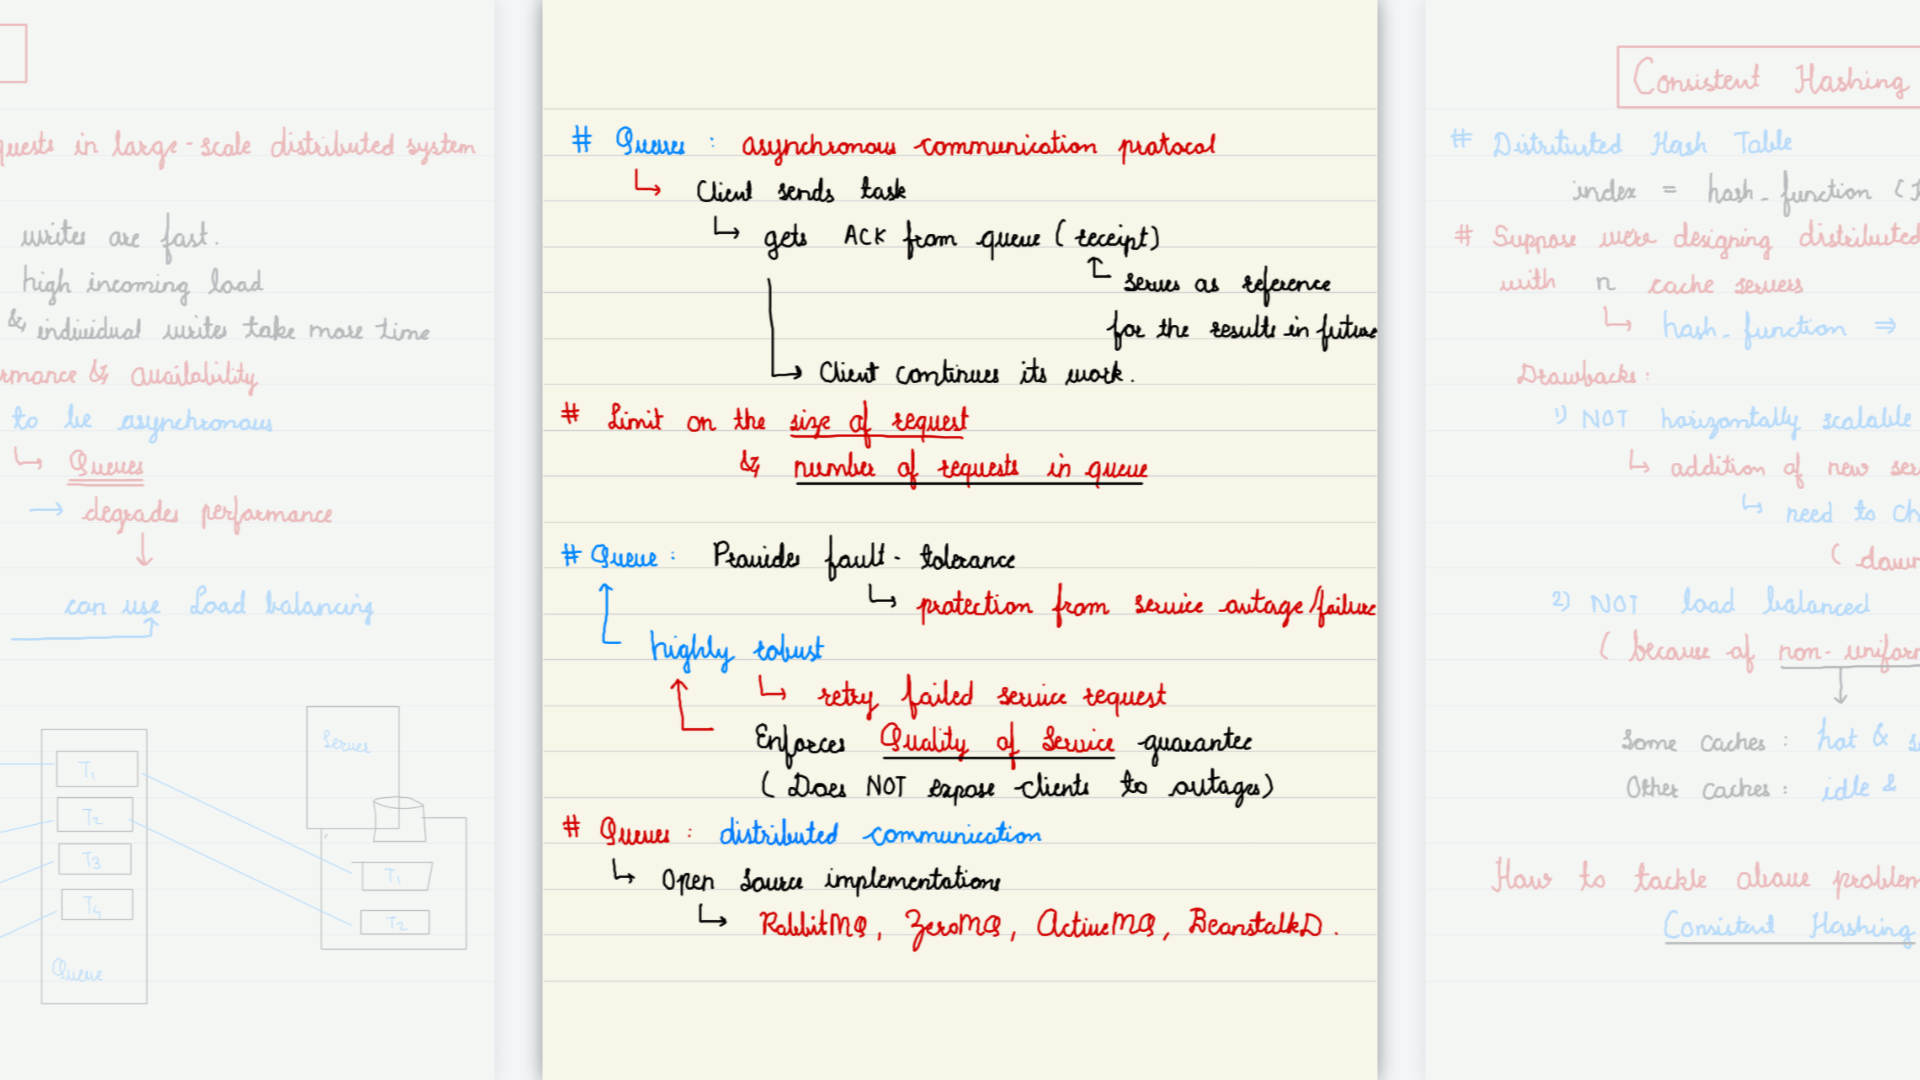 quests in large-scale distributed system
writes are fast.
high incoming load
& individual writes take more time
rmance & availability
to be asynchronous
↳ Queues
→ degrades performance
↓
can use Load balancing
Server
T1
T2
T3
T4
Queue
T1
T2
# Queues : asynchronous communication protocol
↳ Client sends task
↳ gets ACK from queue (receipt)
serves as reference
for the results in future
↳ Client continues its work.
# Limit on the size of request
& number of requests in queue
# Queue : Provides fault-tolerance
↳ protection from service outage/failure
highly robust
↳ retry failed service request
Enforces Quality of Service guarantee
( Does NOT expose clients to outages)
# Queues : distributed communication
↳ Open source implementations
↳ RabbitMQ, ZeroMQ, ActiveMQ, BeanstalkD.
Consistent Hashing
# Distributed Hash Table
index = hash_function (
# Suppose we're designing distributed
with n cache servers
↳ hash_function ⇒
Drawbacks :
1) NOT horizontally scalable
↳ addition of new ser
↳ need to ch
( down
2) NOT load balanced
( because of non-uniform
↓
Some caches : hot & s
Other caches : idle &
How to tackle above problem
Consistent Hashing